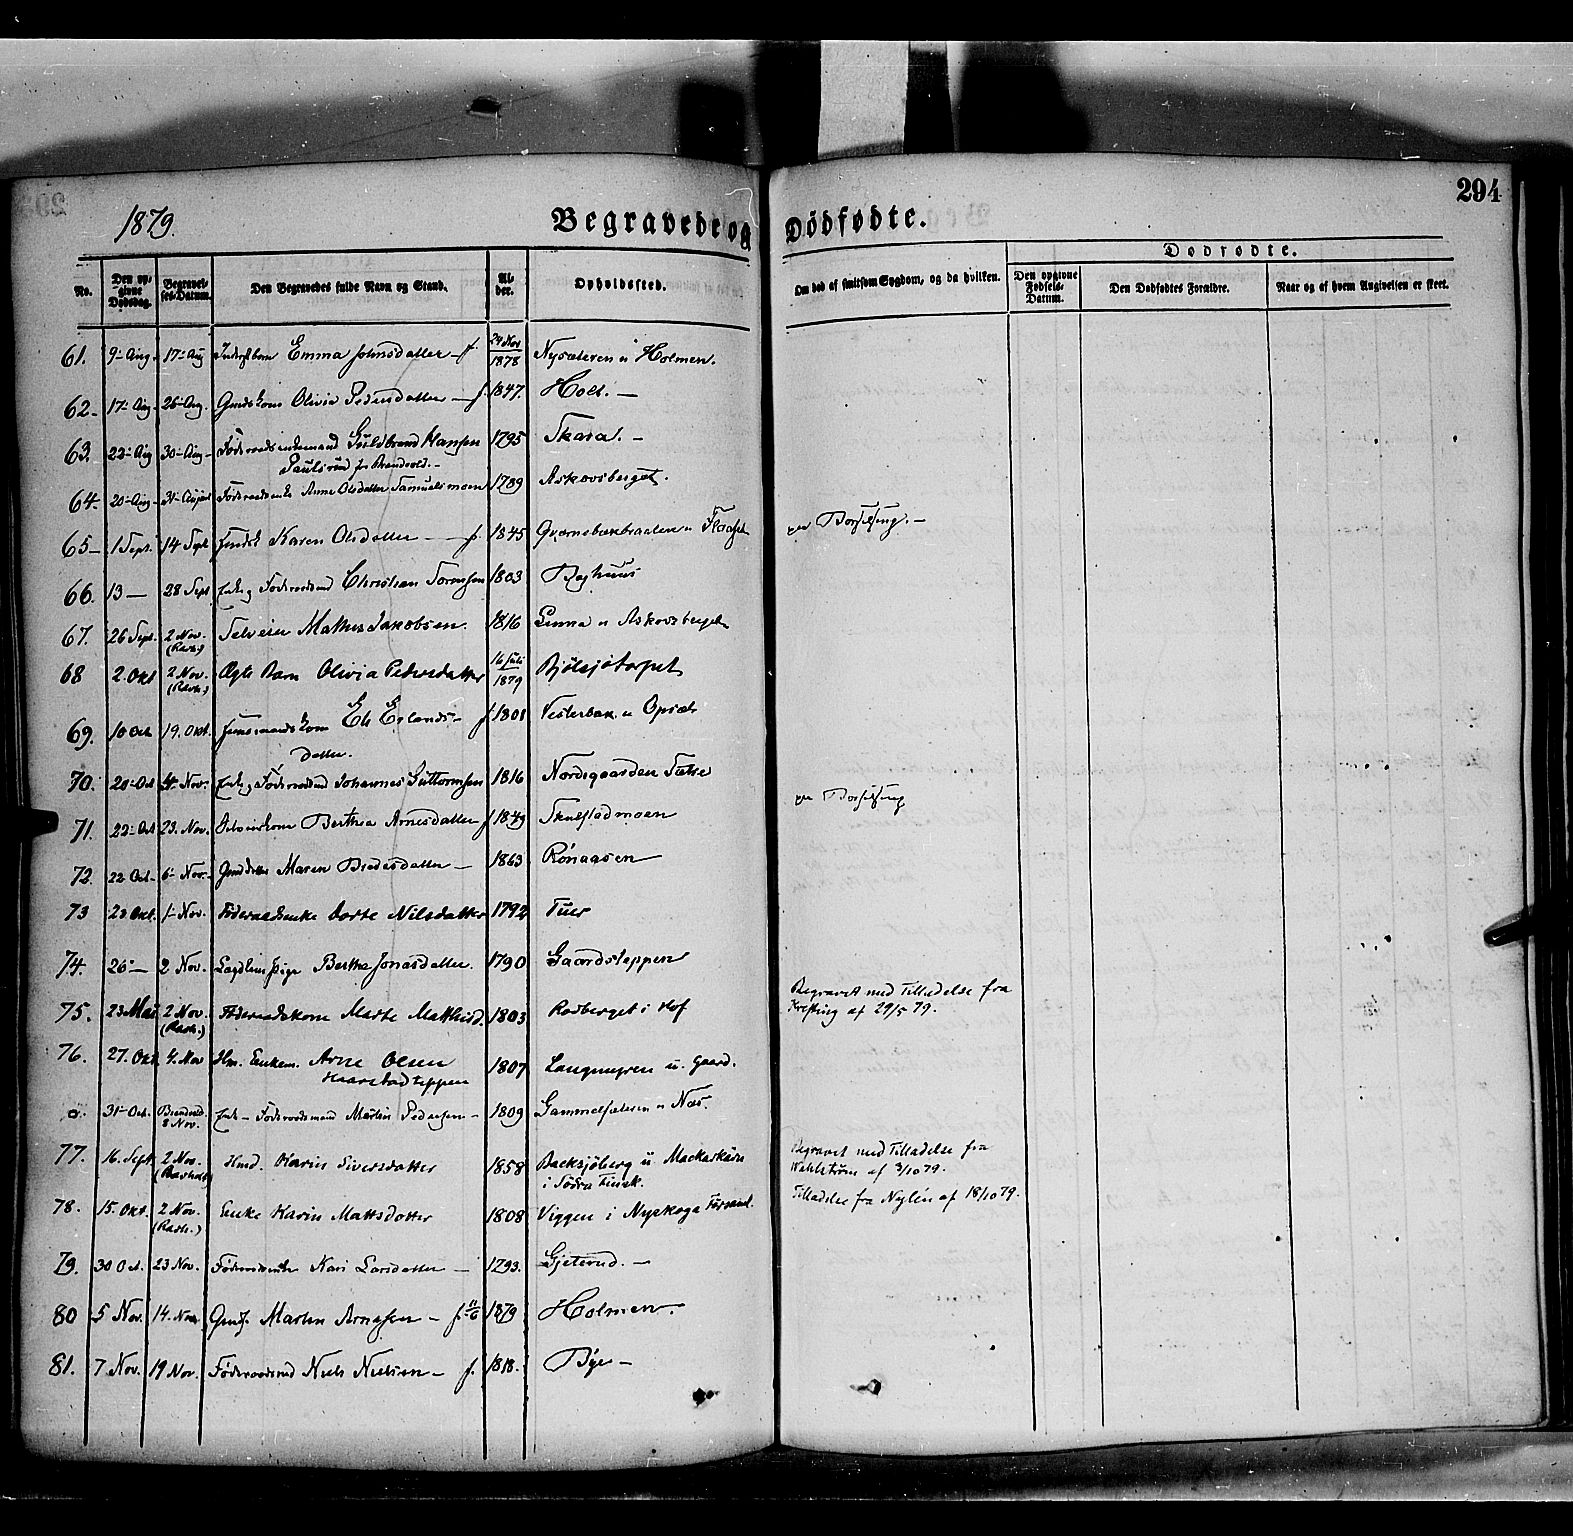 294
1879.
Begravede og Dödfødte.
Dødfødte.
No.
Den opgivne Dødsdag.
Begravelses-Datum.
Den Begravedes fulde Navn og Stand.
Alder.
Opholdssted.
Om død af smitsom Sygdom, og da hvilken.
Den opgivne Fødsels-Datum.
Den Dødfødtes Forældre.
Naar og af hvem Angivelsen er skeet.
61. 9- Aug. 17- Aug Emma Johnsdatter - f. 24 Nov 1878 Nysæteren u Holmen.
62- 17- Aug. 26- Aug. Olivia Pedersdatter - f. 1847. Holt. -
63. 22- Aug 30- Aug- Guldbrand Hansen 1795 Skara. -
Paulsrud fra Brandvold. -
64- 20- Aug- 31- August Føderaadsenke Anne Olsdatter Samuelsmoen 1789 Askovsberget.
65- 1 Sept. 14 Sept Karen Olsdatter - f. 1845 u Fladset
66. 13 - 28 Sept Føderaadsmd Christian Sørensen 1803 Baghuus
67. 26 Sept. 2 Nov. (Ravh.) Selveier Mathis Jakobsen. 1816 Linna u Askovsberget
68 2. Okt 2 Nov. (Ravh.) Ægte Barn Olivia Pedersdatter 16 Juli 1879 Bjölsjötorpet
69. 10 Oct. 19. Okt. Eli Erlands- f. 1801 Vesterbak. u Opsæt
datter.
70. 20- Oct 4- Nov. Føderaadsmd Johannes Guttormsen 1816 Nordigaarden Sætre
71. 22- Oct 23. Nov. Selveierkone Berthea Arnesdatter f 1849 Skulstadmoen
72. 22 Oct- 6- Nov. Maren Bredesdatter - 1863 Rönaasen
73 23 Okt. 1- Nov. Føderaadsenke Dorte Nilsdatter 1792 Tuer
74. 26- - 2 Nov. Berthe Jonasdatter. 1790 Gaardsteppen
75. 23 Mai 2 Nov. (Ravh.) Föderaadskone Marte Mathisd. 1803 Rosberget i Hof Begravet med Tilladelse fra
Krefting af 29/5 79.
76. 27. Okt 4. Nov Hm. Enkem. Arne Olsen 1807 Langmyren u. Gaard.
Haarstadteppen
a. 31- Oct. Brandvold 8 Nov. Føderaadsmand Martin Pedersen - 1809 Gammelsæteren u Næs.
77. 16. Sept 2 Nov. (Ravholt) Hmd. Karin Siversdatter 1858 Backsjöberg u. Mackarkärn
i Södra Finsk. Begravet med Tilladelse fra
Wahlström af 3/10 79.
78. 15. Okt. 2 Nov. (Ravh.) Enke Karin Mattsdotter 1808 Viggen i Nyskoga Församl. Tilladelse fra Nylén af 18/10 79.
79. 30 Oct. 23 Nov. Føderaadsenke Kari Larsdatter - 1793. Gjeterud. -
80 5 Nov. 14. Nov Martin Arnesen - f. 11/6 1879 Holmen.
81. 7 Nov. 19 Nov. Føderaadsmd Niels Nielsen - f. 1818. Bye -